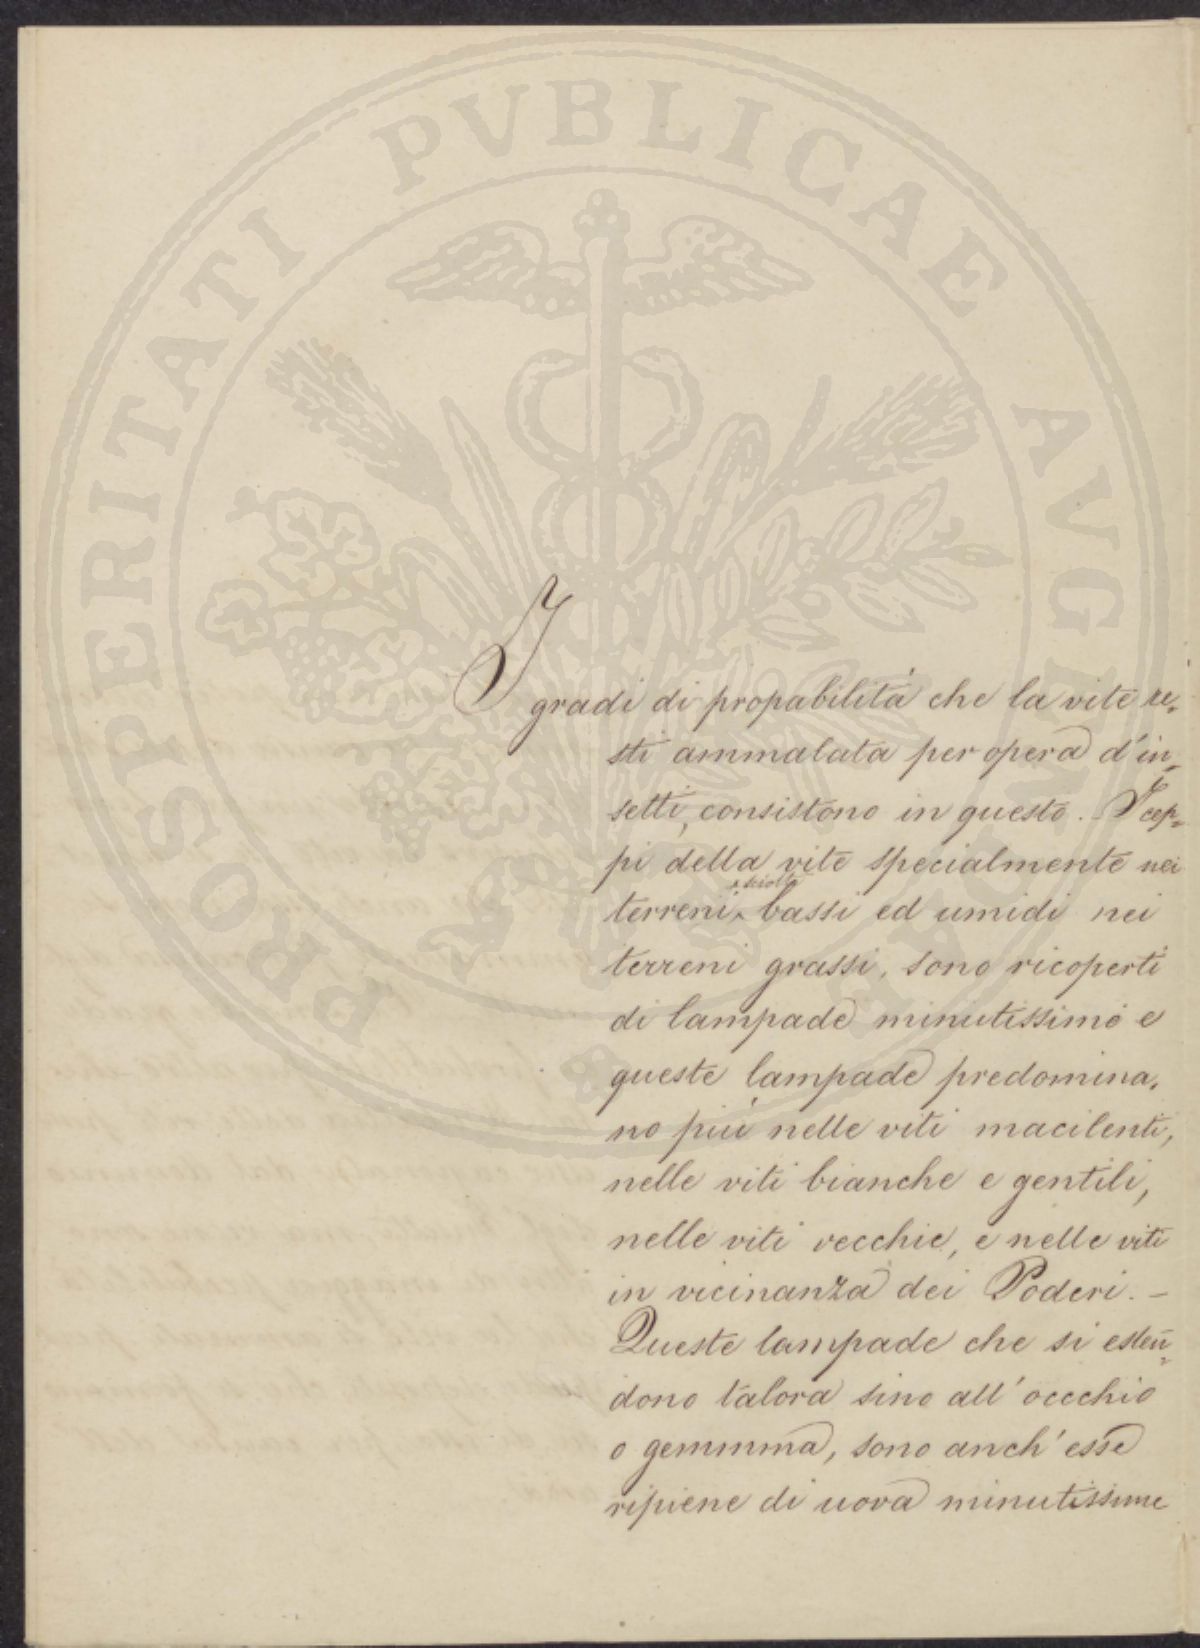 PROSPERITATI PVBLICAE AVGENDAE
I gradi di propabilità che la vite re=
sti ammalata per opera d'in=
setti, consistono in questo. I cep=
pi della vite specialmente nei
sciolti
terreni bassi ed umidi nei
terreni grassi, sono ricoperti
di lampade minutissime e
queste lampade predomina=
no più nelle viti macilenti,
nelle viti bianche e gentili,
nelle viti vecchie, e nelle viti
in vicinanza dei Poderi. –
Queste lampade che si esten=
dono talora sino all'occchio
o gemmma, sono anch'esse
ripiene di uova minutissime